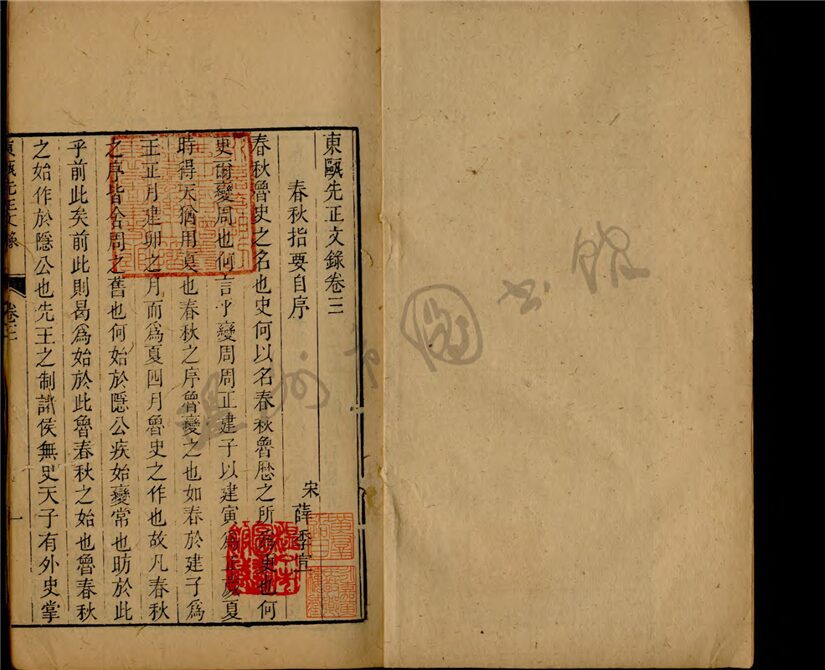 東甌先正文錄卷三
春秋指要自序
宋 薛季宣
春秋魯史之名也史何以名春秋魯厯之所 史也何
史爾變周也何言乎變周周正建子以建寅爲正歲夏
時得天猶用夏也春秋之序魯變之也如春於建子爲
王正月建卯之月而爲夏四月魯史之作也故凡春秋
之序皆舍周之舊也何始於隱公疾始變常也昉於此
乎前此矣前此則曷爲始於此魯春秋之始也魯春秋
之始作於隱公也先王之制諸侯無史天子有外史掌
東甌先正文錄
卷三
一
溫州市圖書館